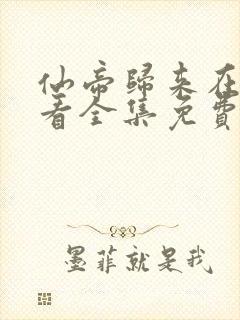 仙帝歸來在
看全集免費
墨菲就是我